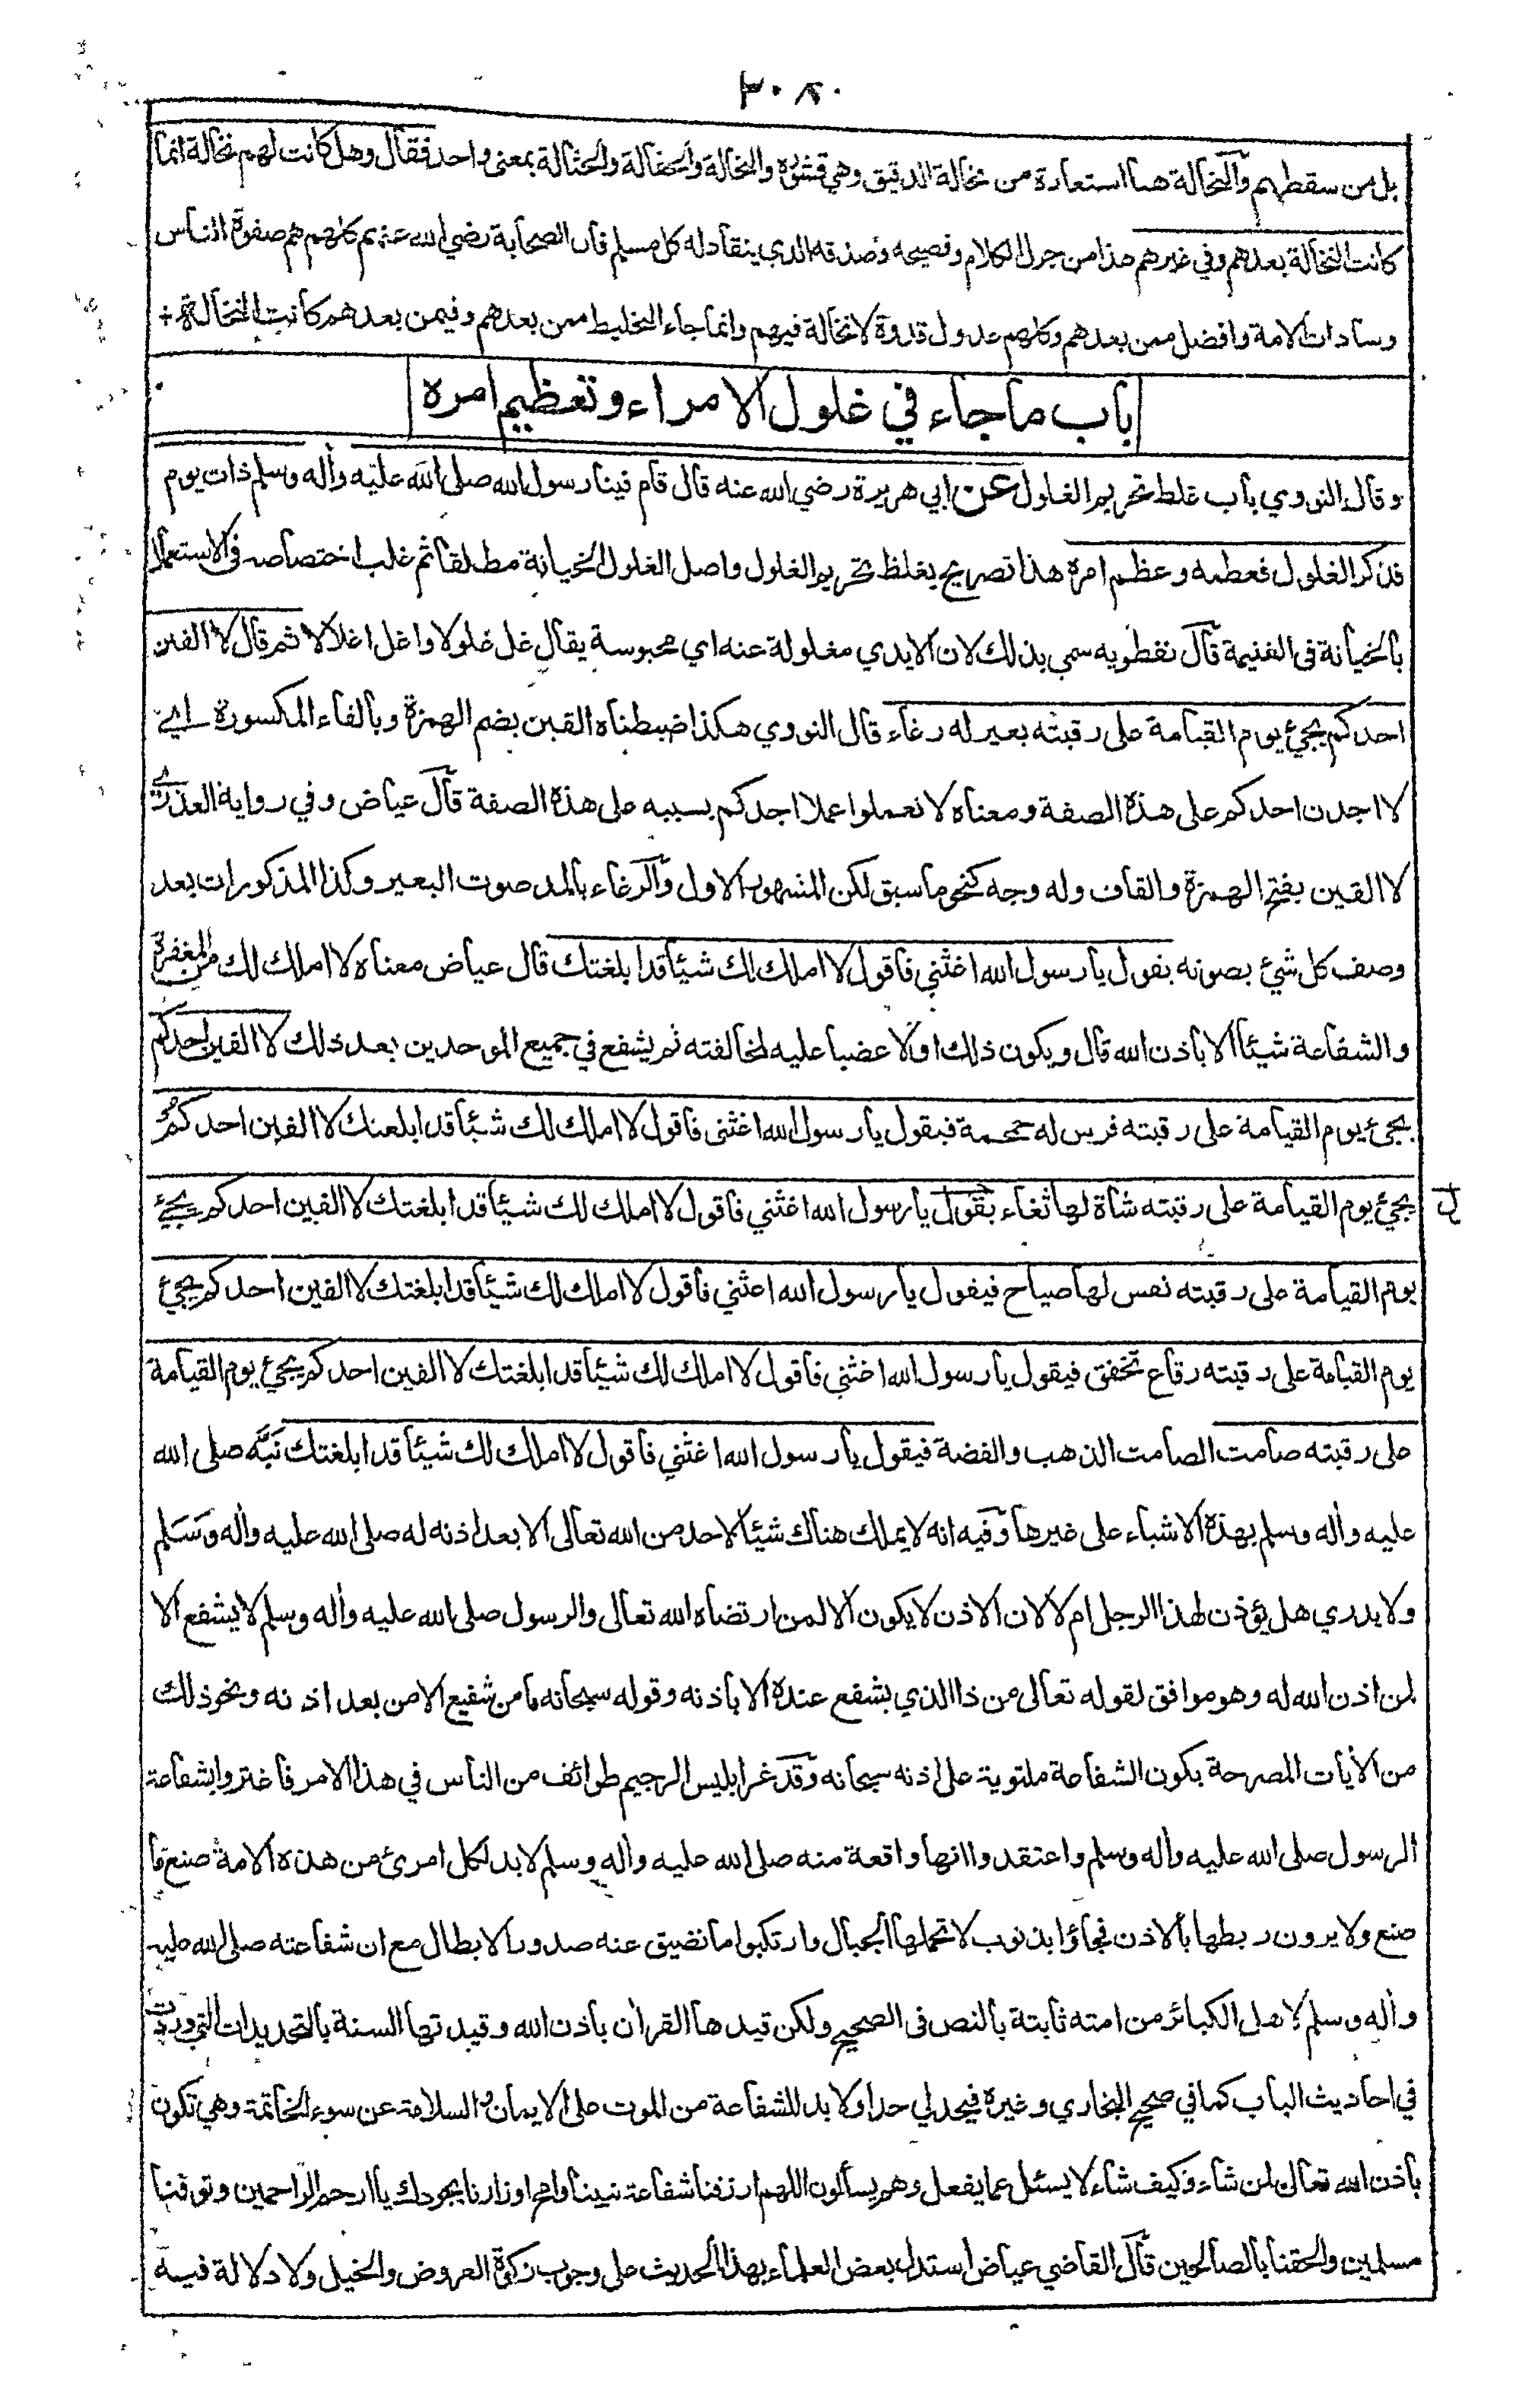 ٣٠٨
بل من سقطهم والنخالة هنا استعارة من نخالة الدقيق وهي قشوره والنخالة والحفالة والحثالة بمعنى واحد فقال وهل كانت لهم نخالة انما
كانت النخالة بعدهم وفي غيرهم هذا من جزل الكلام وفصيحه وصدقه الذي ينقاد له كل مسلم فان الصحابة رضي الله عنهم كلهم هم صفوة الناس
وسادات الامة وافضل ممن بعدهم وكلهم عدول قدوة لا نخالة فيهم وانما جاء التخليط ممن بعدهم وفيمن بعدهم كانت النخالة
باب ما جاء في غلول الامراء وتعظيم امره
وقال النووي باب غلظ تحريم الغلول عن ابي هريرة رضي الله عنه قال قام فينا رسول الله صلى الله عليه وأله وسلم ذات يوم
فذكر الغلول فعظمه وعظم امره هذا تصريح بغلظ تحريم الغلول واصل الغلول الخيانة مطلقا ثم غلب اختصاصه في الاستعمال
بالخيانة في الغنيمة قال نفطويه سمي بذلك لان الايدي مغلولة عنه اي محبوسة يقال غل غلولا واغل اغلالا ثم قال لا الفين
احدكم يجئ يوم القيامة على رقبته بعير له رغاء قال النووي هكذا ضبطناه الفين بضم الهمزة وبالفاء المكسورة اي
لا اجدن احدكم على هذه الصفة ومعناه لا تعملوا عملا اجدكم بسببه على هذه الصفة قال عياض وفي رواية العذري
لا القين بفتح الهمزة والقاف وله وجه كنحو ما سبق لكن المشهور الاول والرغاء بالمد صوت البعير وكذا المذكورات بعد
وصف كل شئ بصوته يقول يا رسول الله اغثني فاقول لا املك لك شيئا قد ابلغتك قال عياض معناه لا املك لك من المغفرة
والشفاعة شيئا الا باذن الله قال ويكون ذلك اولا غضبا عليه لمخالفته ثم يشفع في جميع الموحدين بعد ذلك لا الفين احدكم
يجئ يوم القيامة على رقبته فرس له حمحمة فيقول يا رسول الله اغثني فاقول لا املك لك شيئا قد ابلغتك لا الفين احدكم
يجئ يوم القيامة على رقبته شاة لها ثغاء يقول يا رسول الله اغثني فاقول لا املك لك شيئا قد ابلغتك لا الفين احدكم يجئ
يوم القيامة على رقبته نفس لها صياح فيقول يا رسول الله اغثني فاقول لا املك لك شيئا قد ابلغتك لا الفين احدكم يجئ
يوم القيامة على رقبته رقاع تخفق فيقول يا رسول الله اغثني فاقول لا املك لك شيئا قد ابلغتك لا الفين احدكم يجئ يوم القيامة
على رقبته صامت الصامت الذهب والفضة فيقول يا رسول الله اغثني فاقول لا املك لك شيئا قد ابلغتك نبَّه صلى الله
عليه وأله وسلم بهذه الاشياء على غيرها وفيه انه لا يملك هناك شيئا لاحد من الله تعالى الا بعد اذنه له صلى الله عليه وأله وسلم
ولا يدري هل يؤذن لهذا الرجل ام لا لان الاذن لا يكون الا لمن ارتضاه الله تعالى والرسول صلى الله عليه وأله وسلم لا يشفع الا
لمن اذن الله له وهو موافق لقوله تعالى من ذا الذي يشفع عنده الا باذنه وقوله سبحانه ما من شفيع الا من بعد اذنه ونحو ذلك
من الأيات المصرحة بكون الشفاعة ملتوية على اذنه سبحانه وقد غر ابليس الرجيم طوائف من الناس في هذا الامر فاغتروا بشفاعة
الرسول صلى الله عليه وأله وسلم واعتقدوا انها واقعة منه صلى الله عليه وأله وسلم لا بد لكل امرئ من هذه الامة صنع ما
صنع ولا يرون ربطها بالاذن فجاؤا بذنوب لا تحملها الجبال وارتكبوا ما تضيق عنه صدور الابطال مع ان شفاعته صلى الله عليه
وأله وسلم لاهل الكبائر من امته ثابتة بالنص في الصحيح ولكن قيدها القرأن باذن الله وقيدتها السنة بالتحديدات التي وردت
في احاديث الباب كما في صحيح البخاري وغيره فيحد لي حدا ولا بد للشفاعة من الموت على الايمان والسلامة عن سوء الخاتمة وهي تكون
باذن الله تعالى لمن شاء وكيف شاء لا يسئل عما يفعل وهم يسألون اللهم ارزقنا شفاعة نبينا وامح اوزارنا بجودك يا ارحم الراحمين وتوفنا
مسلمين والحقنا بالصالحين قال القاضي عياض استدل بعض العلماء بهذا الحديث على وجوب زكوة العروض والخيل ولا دلالة فيه